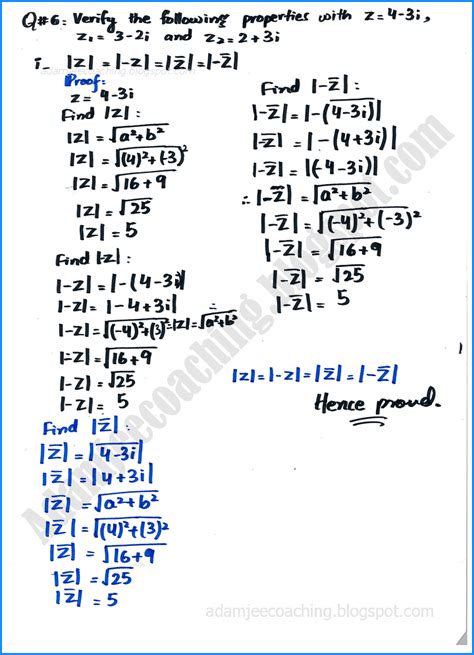 Q#6: Verify the following properties with z=4-3i,
z₁=3-2i and z₂=2+3i
i- |z|=|-z|=|z̅|=|-z̅|
adamjeecoaching.blogspot.com
Proof:
z=4-3i
Find |z|:
|z|=√a²+b²
|z|=√(4)²+(-3)²
|z|=√16+9
|z|=√25
|z|=5
Find |-z|:
|-z|=|-(4-3i)|
|-z|=|-4+3i|
|-z|=√(-4)²+(3)² ∵|z|=√a²+b²
|-z|=√16+9
|-z|=√25
|-z|=5
Find |z̅|:
|z̅|=|4-3i|
|z̅|=|4+3i|
|z̅|=√a²+b²
|z̅|=√(4)²+(3)²
|z̅|=√16+9
|z̅|=√25
|z̅|=5
Find |-z̅|:
|-z̅|=|-(4-3i)|
|-z̅|=|-(4+3i)|
|-z̅|=|(-4-3i)|
∴|-z̅|=√a²+b²
|-z̅|=√(-4)²+(-3)²
|-z̅|=√16+9
|-z̅|=√25
|-z̅|=5
|z|=|-z|=|z̅|=|-z̅|
Hence proud.
Adamjeecoaching.blogspot.com
adamjeecoaching.blogspot.com